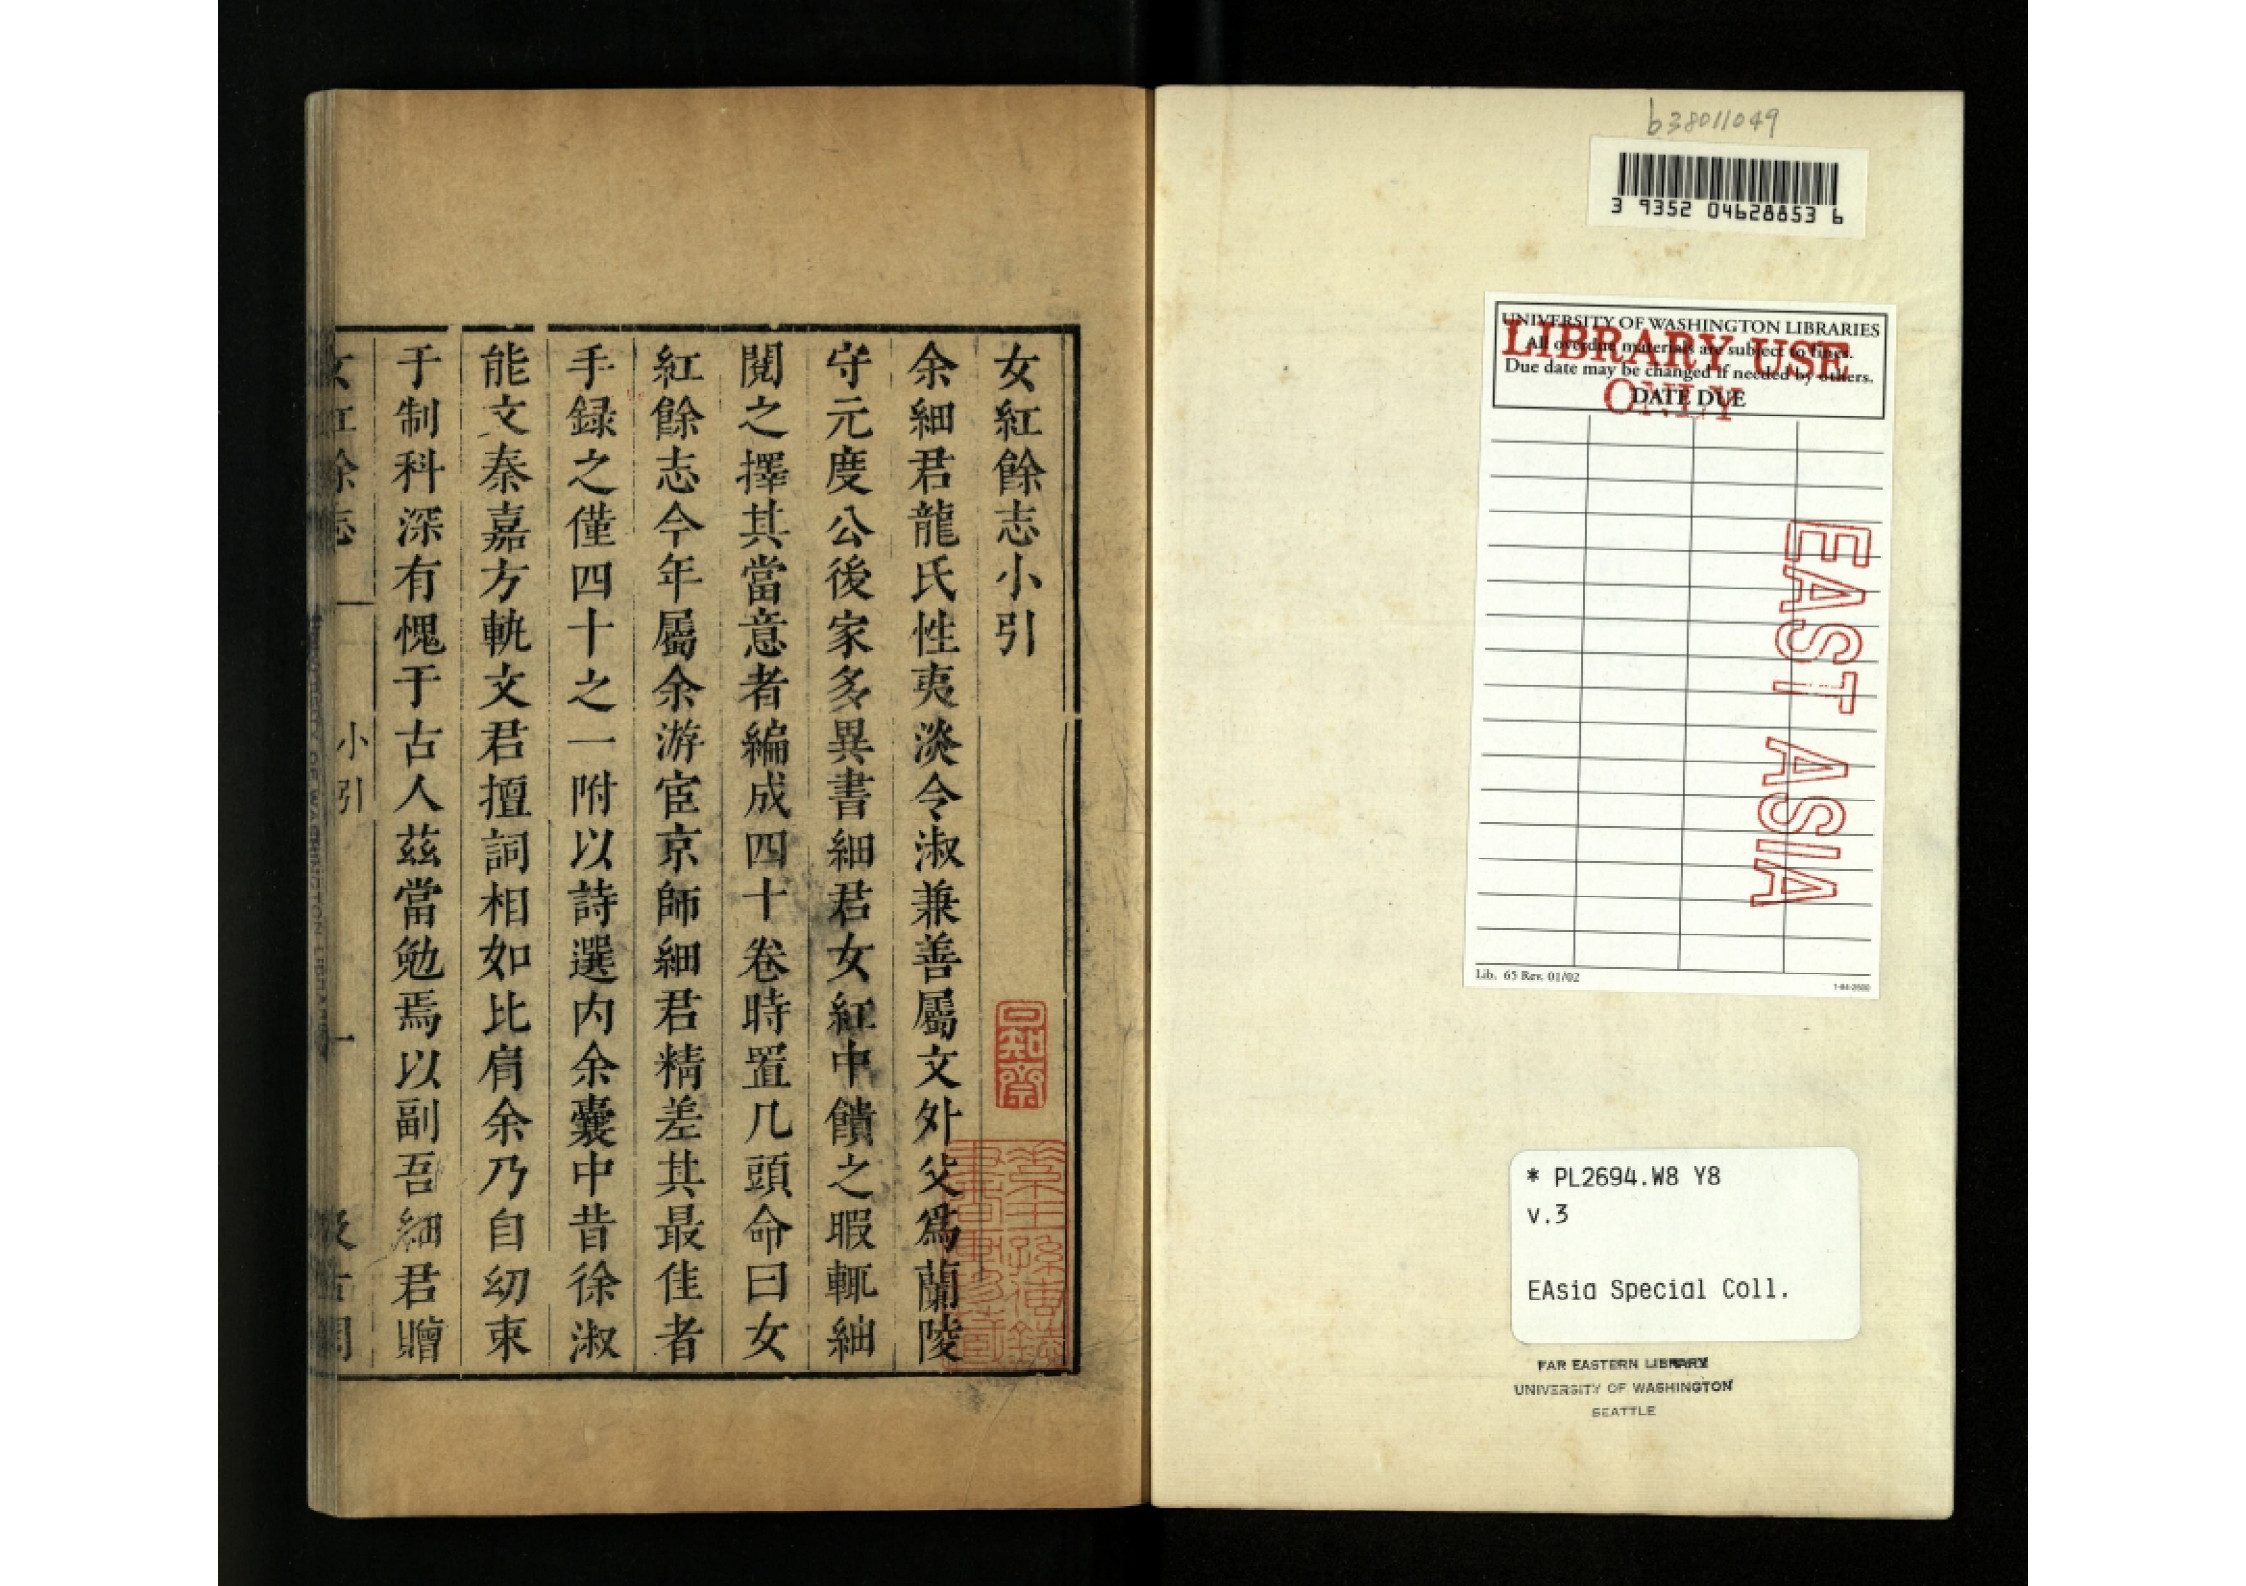 b38011049
3 9352 04628853 6
UNIVERSITY OF WASHINGTON LIBRARIES
LIBRARY USE ONLY
All overdue materials are subject to fines.
Due date may be changed if needed by others.
DATE DUE
EAST ASIA
Lib. 65 Rev. 01/02
* PL2694.W8 Y8
v.3
EAsia Special Coll.
FAR EASTERN LIBRARY
UNIVERSITY OF WASHINGTON
SEATTLE
女紅餘志小引
余細君龍氏性夷淡令淑兼善屬文外父為蘭陵
守元度公後家多異書細君女紅中饋之暇輒紬
閱之擇其當意者編成四十卷時置几頭命曰女
紅餘志今年屬余游宦京師細君精差其最佳者
手録之僅四十之一附以詩選内余囊中昔徐淑
能文秦嘉方軌文君擅詞相如比肩余乃自幼束
于制科深有愧于古人茲當勉焉以副吾細君贈
女紅餘志 小引 一